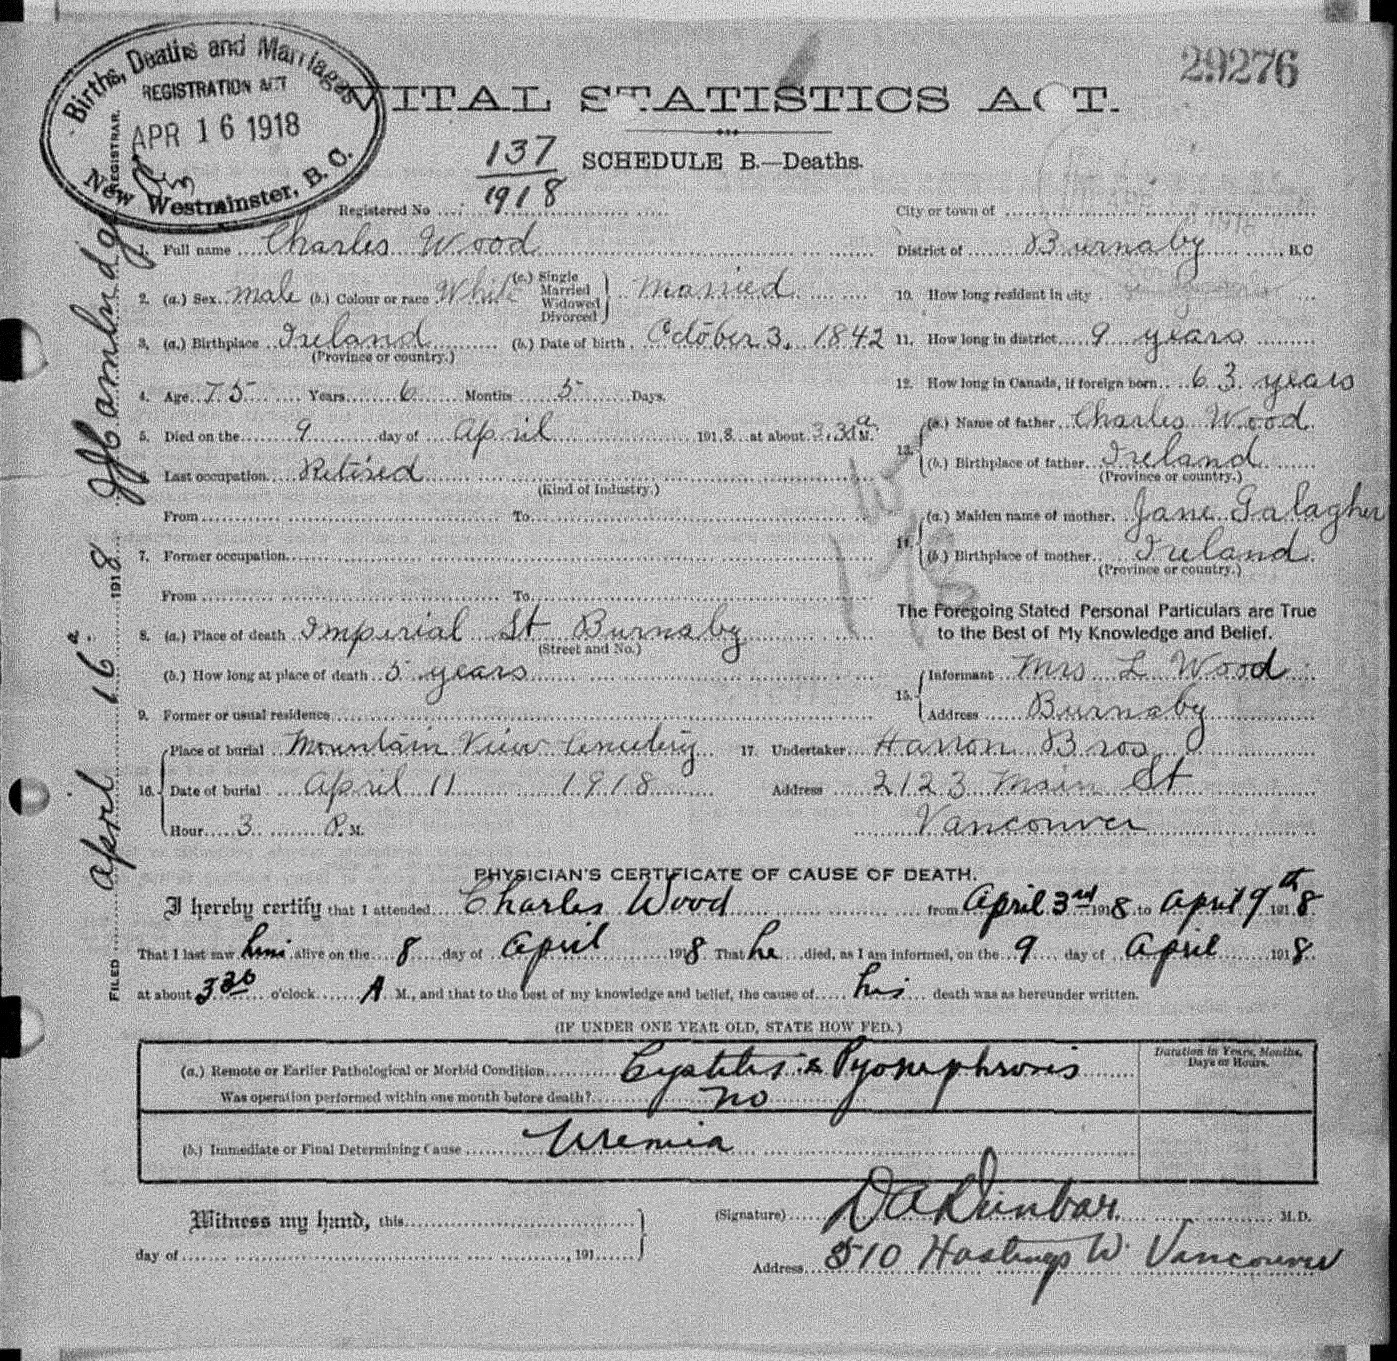 29276
Births, Deaths and Marriages
REGISTRATION ACT
APR 16 1918
REGISTRAR.
New Westminster, B.C.
VITAL STATISTICS ACT.
137
1918
SCHEDULE B.—Deaths.
Registered No
City or town of
1. Full name Charles Wood
District of Burnaby B.C
2. (a.) Sex male (b.) Colour or race White (c.) Single Married Widowed Divorced } Married
10. How long resident in city
3. (a.) Birthplace Ireland (b.) Date of birth October 3, 1842
(Province or country.)
11. How long in district 9 years
4. Age 75 Years 6 Months 5 Days.
12. How long in Canada, if foreign born 63 years
5. Died on the 9 day of April 1918 at about 3.30 a M.
13. (a.) Name of father Charles Wood
(b.) Birthplace of father Ireland
(Province or country.)
6. Last occupation Retired
(Kind of Industry.)
From To
14. (a.) Maiden name of mother Jane Galagher
(b.) Birthplace of mother Ireland
(Province or country.)
7. Former occupation
From To
The Foregoing Stated Personal Particulars are True
to the Best of My Knowledge and Belief.
8. (a.) Place of death Imperial St Burnaby
(Street and No.)
(b.) How long at place of death 5 years
15. Informant Mrs L Wood
Address Burnaby
9. Former or usual residence
16. Place of burial Mountain View Cemetery
Date of burial April 11 1918
Hour 3 P. M.
17. Undertaker Harron Bros
Address 2123 Main St
Vancouver
FILED April 16 1918
PHYSICIAN'S CERTIFICATE OF CAUSE OF DEATH.
I hereby certify that I attended Charles Wood from April 3rd 1918 to April 9th 1918.
That I last saw him alive on the 8 day of April 1918 That he died, as I am informed, on the 9 day of April 1918.
at about 3 30 o'clock A M., and that to the best of my knowledge and belief, the cause of his death was as hereunder written.
(IF UNDER ONE YEAR OLD, STATE HOW FED.)
Duration in Years, Months,
Days or Hours.
(a.) Remote or Earlier Pathological or Morbid Condition Cystitis & Pyonephrosis
Was operation performed within one month before death? no
(b.) Immediate or Final Determining Cause Uremia
Witness my hand, this
day of , 191
(Signature) DA Dunbar M.D.
Address 510 Hastings W. Vancouver